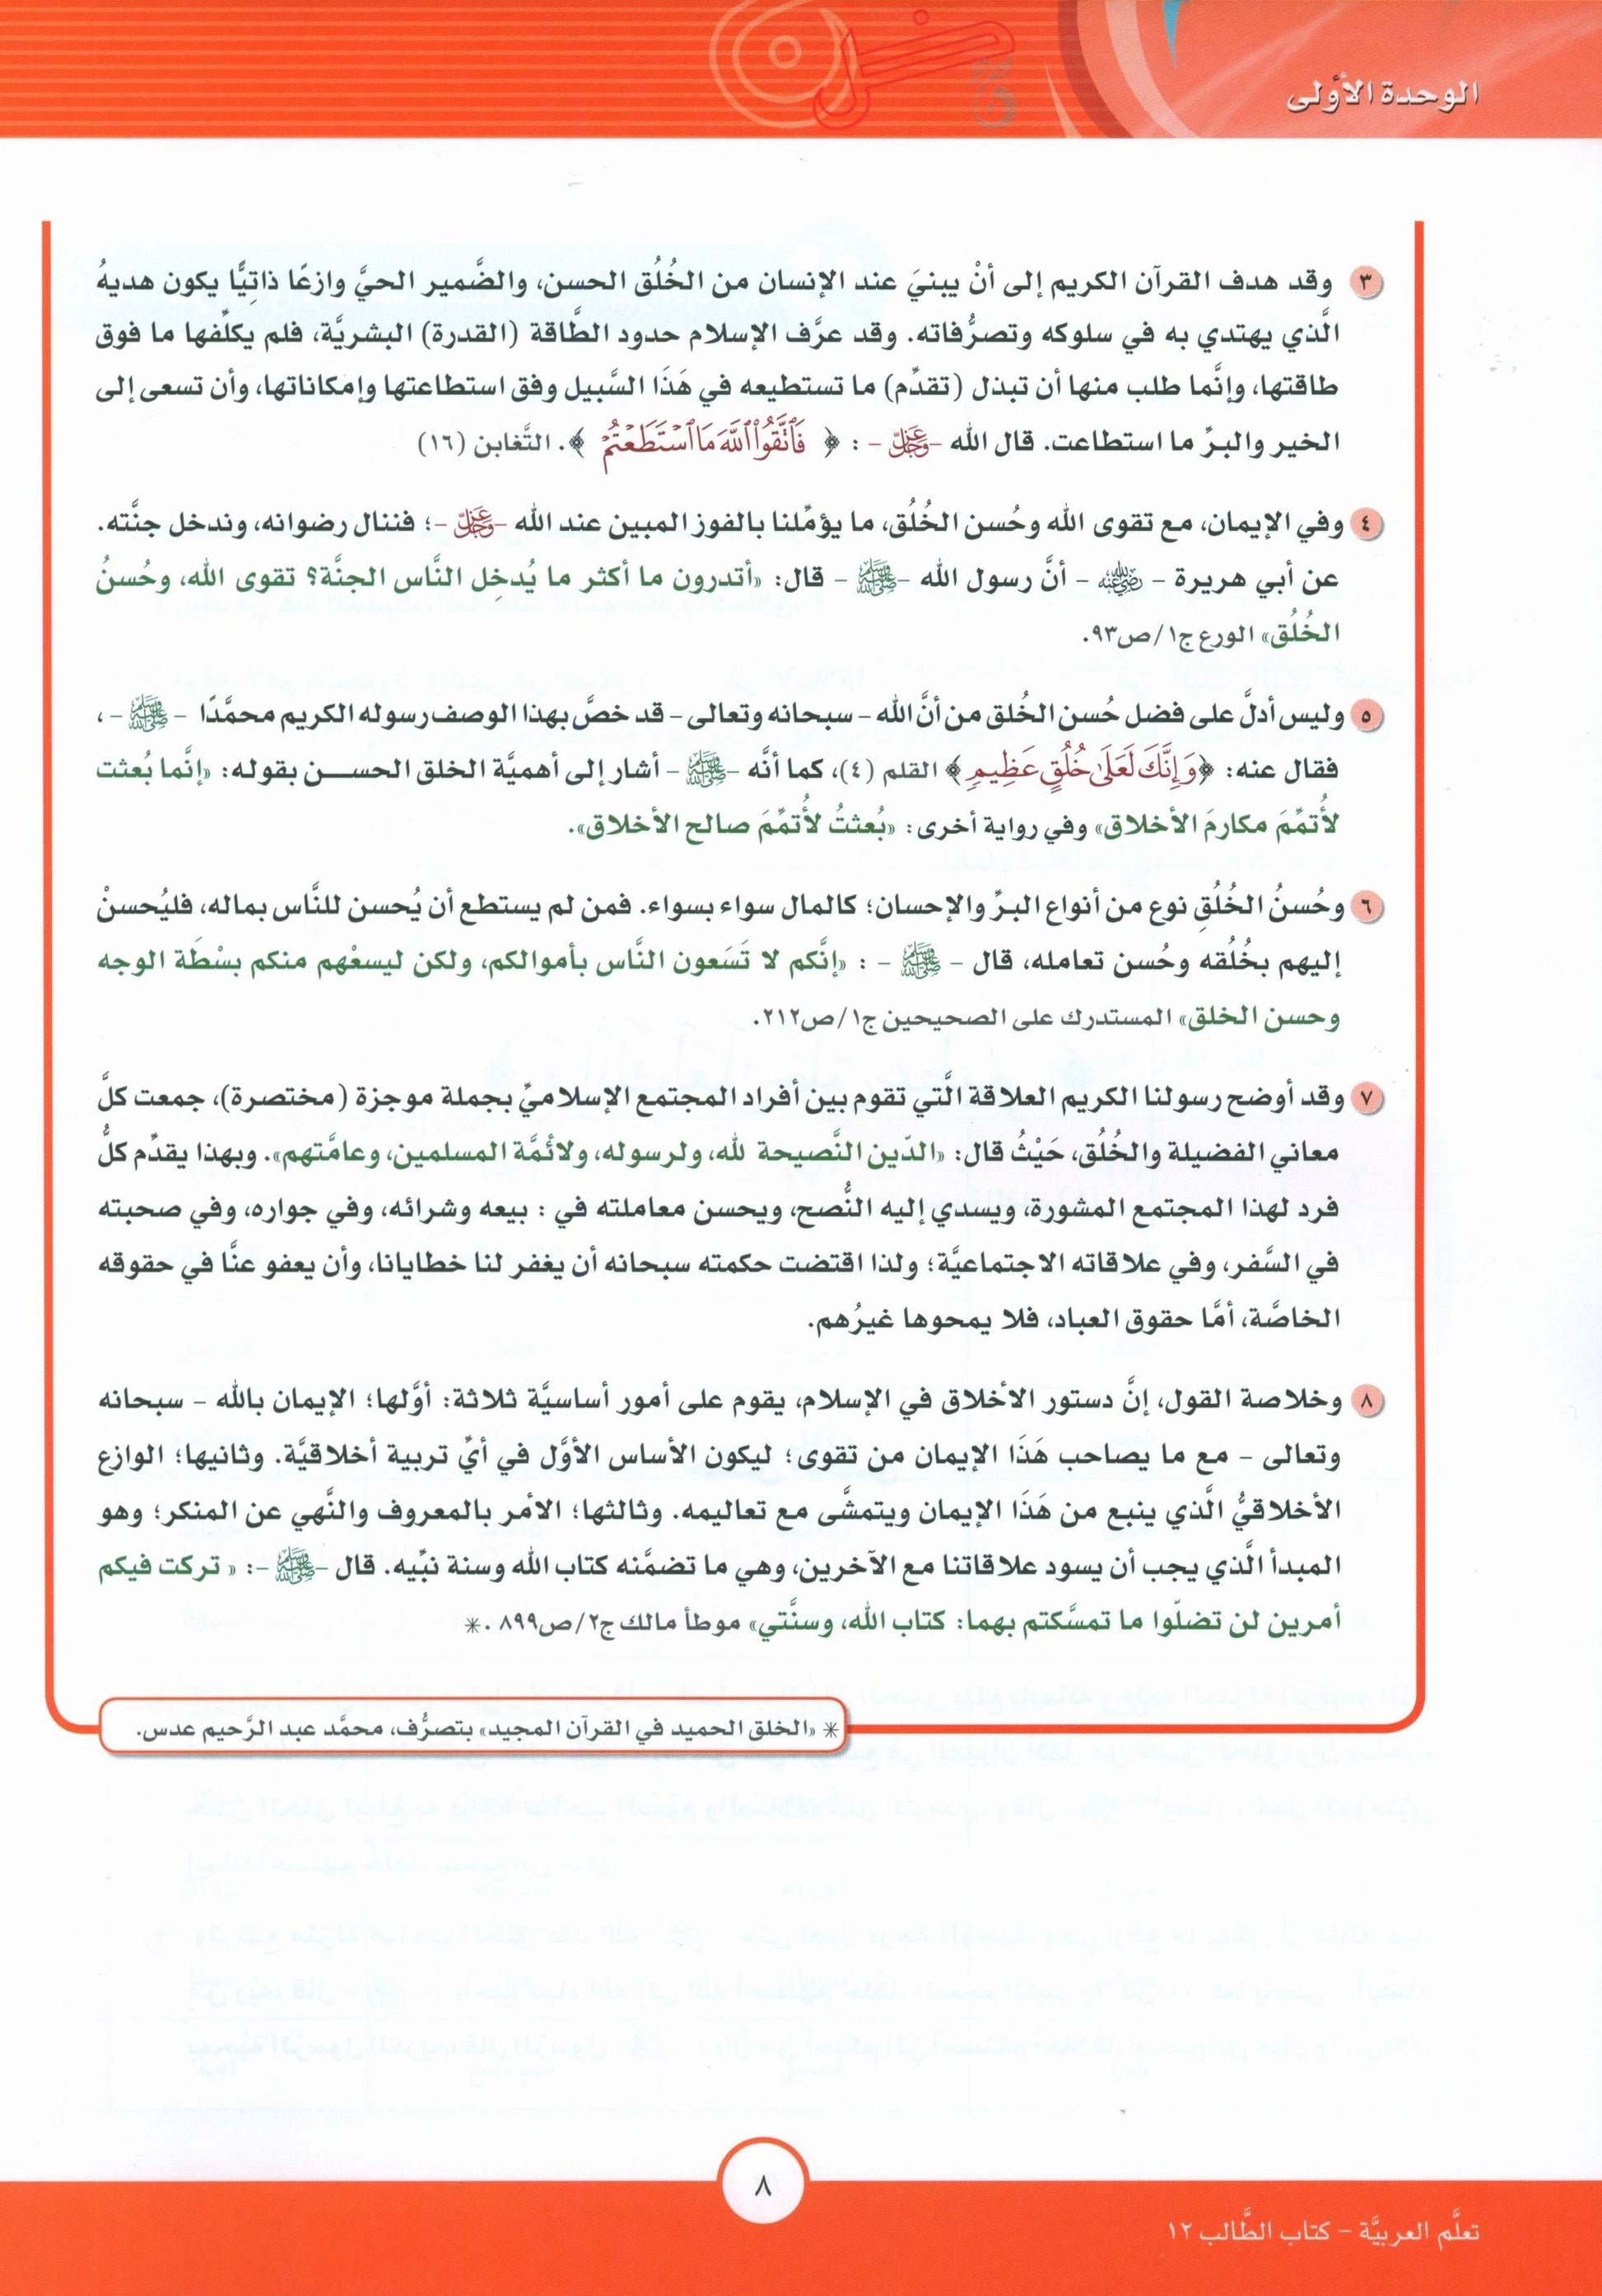 الوحدة الأولى
٣ وقد هدف القرآن الكريم إلى أنْ يبنيَ عند الإنسان من الخُلُق الحسن، والضَّمير الحيَّ وازعًا ذاتِيًّا يكون هديهُ
الَّذي يهتدي به في سلوكه وتصرُّفاته. وقد عرَّف الإسلام حدود الطَّاقة (القدرة) البشريَّة، فلم يكلِّفها ما فوق
طاقتها، وإنَّما طلب منها أن تبذل (تقدِّم) ما تستطيعه في هَذَا السَّبيل وفق استطاعتها وإمكاناتها، وأن تسعى إلى
الخير والبرِّ ما استطاعت. قال الله -عَزَّ وَجَلَّ - : ﴿ فَاتَّقُوا اللَّهَ مَا اسْتَطَعْتُمْ ﴾. التَّغابن (١٦)
٤ وفي الإيمان، مع تقوى الله وحُسن الخُلُق، ما يؤمِّلنا بالفوز المبين عند الله -عَزَّ وَجَلَّ -؛ فننال رضوانه، وندخل جنَّته.
عن أبي هريرة - رضي الله عنه - أنَّ رسول الله -ﷺ - قال: «أتدرون ما أكثر ما يُدخِل النَّاس الجنَّة؟ تقوى الله، وحُسنُ
الخُلُق» الورع ج١/ص٩٣.
٥ وليس أدلَّ على فضل حُسن الخُلق من أنَّ الله - سبحانه وتعالى - قد خصَّ بهذا الوصف رسوله الكريم محمَّدًا - ﷺ - ،
فقال عنه: ﴿وَإِنَّكَ لَعَلَىٰ خُلُقٍ عَظِيمٍ﴾ القلم (٤)، كما أنَّه -ﷺ - أشار إلى أهميَّة الخلق الحســـن بقوله: «إنَّما بُعثت
لأُتمِّمَ مكارمَ الأخلاق» وفي رواية أخرى: «بُعثتُ لأُتمِّمَ صالح الأخلاق».
٦ وحُسنُ الخُلُقِ نوع من أنواع البرِّ والإحسان؛ كالمال سواء بسواء. فمن لم يستطع أن يُحسن للنَّاس بماله، فليُحسنْ
إليهم بخُلُقه وحُسن تعامله، قال - ﷺ - : «إنَّكم لا تَسَعون النَّاس بأموالكم، ولكن ليسعْهم منكم بسْطَة الوجه
وحسن الخلق» المستدرك على الصحيحين ج١/ص٢١٢.
٧ وقد أوضح رسولنا الكريم العلاقة الَّتي تقوم بين أفراد المجتمع الإسلاميِّ بجملة موجزة (مختصرة)، جمعت كلَّ
معاني الفضيلة والخُلُق، حَيْثُ قال: «الدّين النَّصيحة لله، ولرسوله، ولائمَّة المسلمين، وعامَّتهم». وبهذا يقدِّم كلُّ
فرد لهذا المجتمع المشورة، ويسدي إليه النُّصح، ويحسن معاملته في : بيعه وشرائه، وفي جواره، وفي صحبته
في السَّفر، وفي علاقاته الاجتماعيَّة؛ ولذا اقتضت حكمته سبحانه أن يغفر لنا خطايانا، وأن يعفو عنَّا في حقوقه
الخاصَّة، أمَّا حقوق العباد، فلا يمحوها غيرُهم.
٨ وخلاصة القول، إنَّ دستور الأخلاق في الإسلام، يقوم على أمور أساسيَّة ثلاثة: أوَّلها؛ الإيمان بالله - سبحانه
وتعالى - مع ما يصاحب هَذَا الإيمان من تقوى؛ ليكون الأساس الأوَّل في أيِّ تربية أخلاقيَّة. وثانيها؛ الوازع
الأخلاقيُّ الَّذي ينبع من هَذَا الإيمان ويتمشَّى مع تعاليمه. وثالثها؛ الأمر بالمعروف والنَّهي عن المنكر؛ وهو
المبدأ الَّذي يجب أن يسود علاقاتنا مع الآخرين، وهي ما تضمَّنه كتاب الله وسنة نبِّيه. قال -ﷺ -: « تركت فيكم
أمرين لن تضلّوا ما تمسَّكتم بهما: كتاب الله، وسنَّتي» موطأ مالك ج٢/ص٨٩٩ .*
* «الخلق الحميد في القرآن المجيد» بتصرُّف، محمَّد عبد الرَّحيم عدس.
٨
تعلَّم العربيَّة - كتاب الطَّالب ١٢